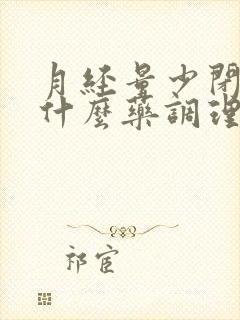 月經量少閉
什麼藥調理
祁宦